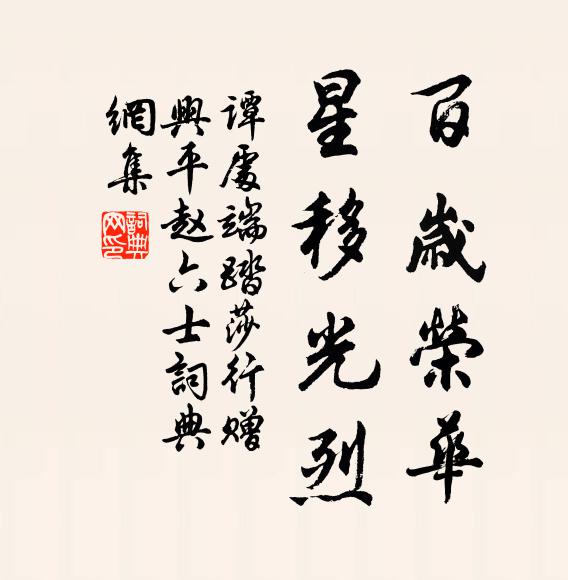 百歲榮華
星移光烈
譚處端踏莎行赠
興平赵六士詞典
網集
詞典
网印